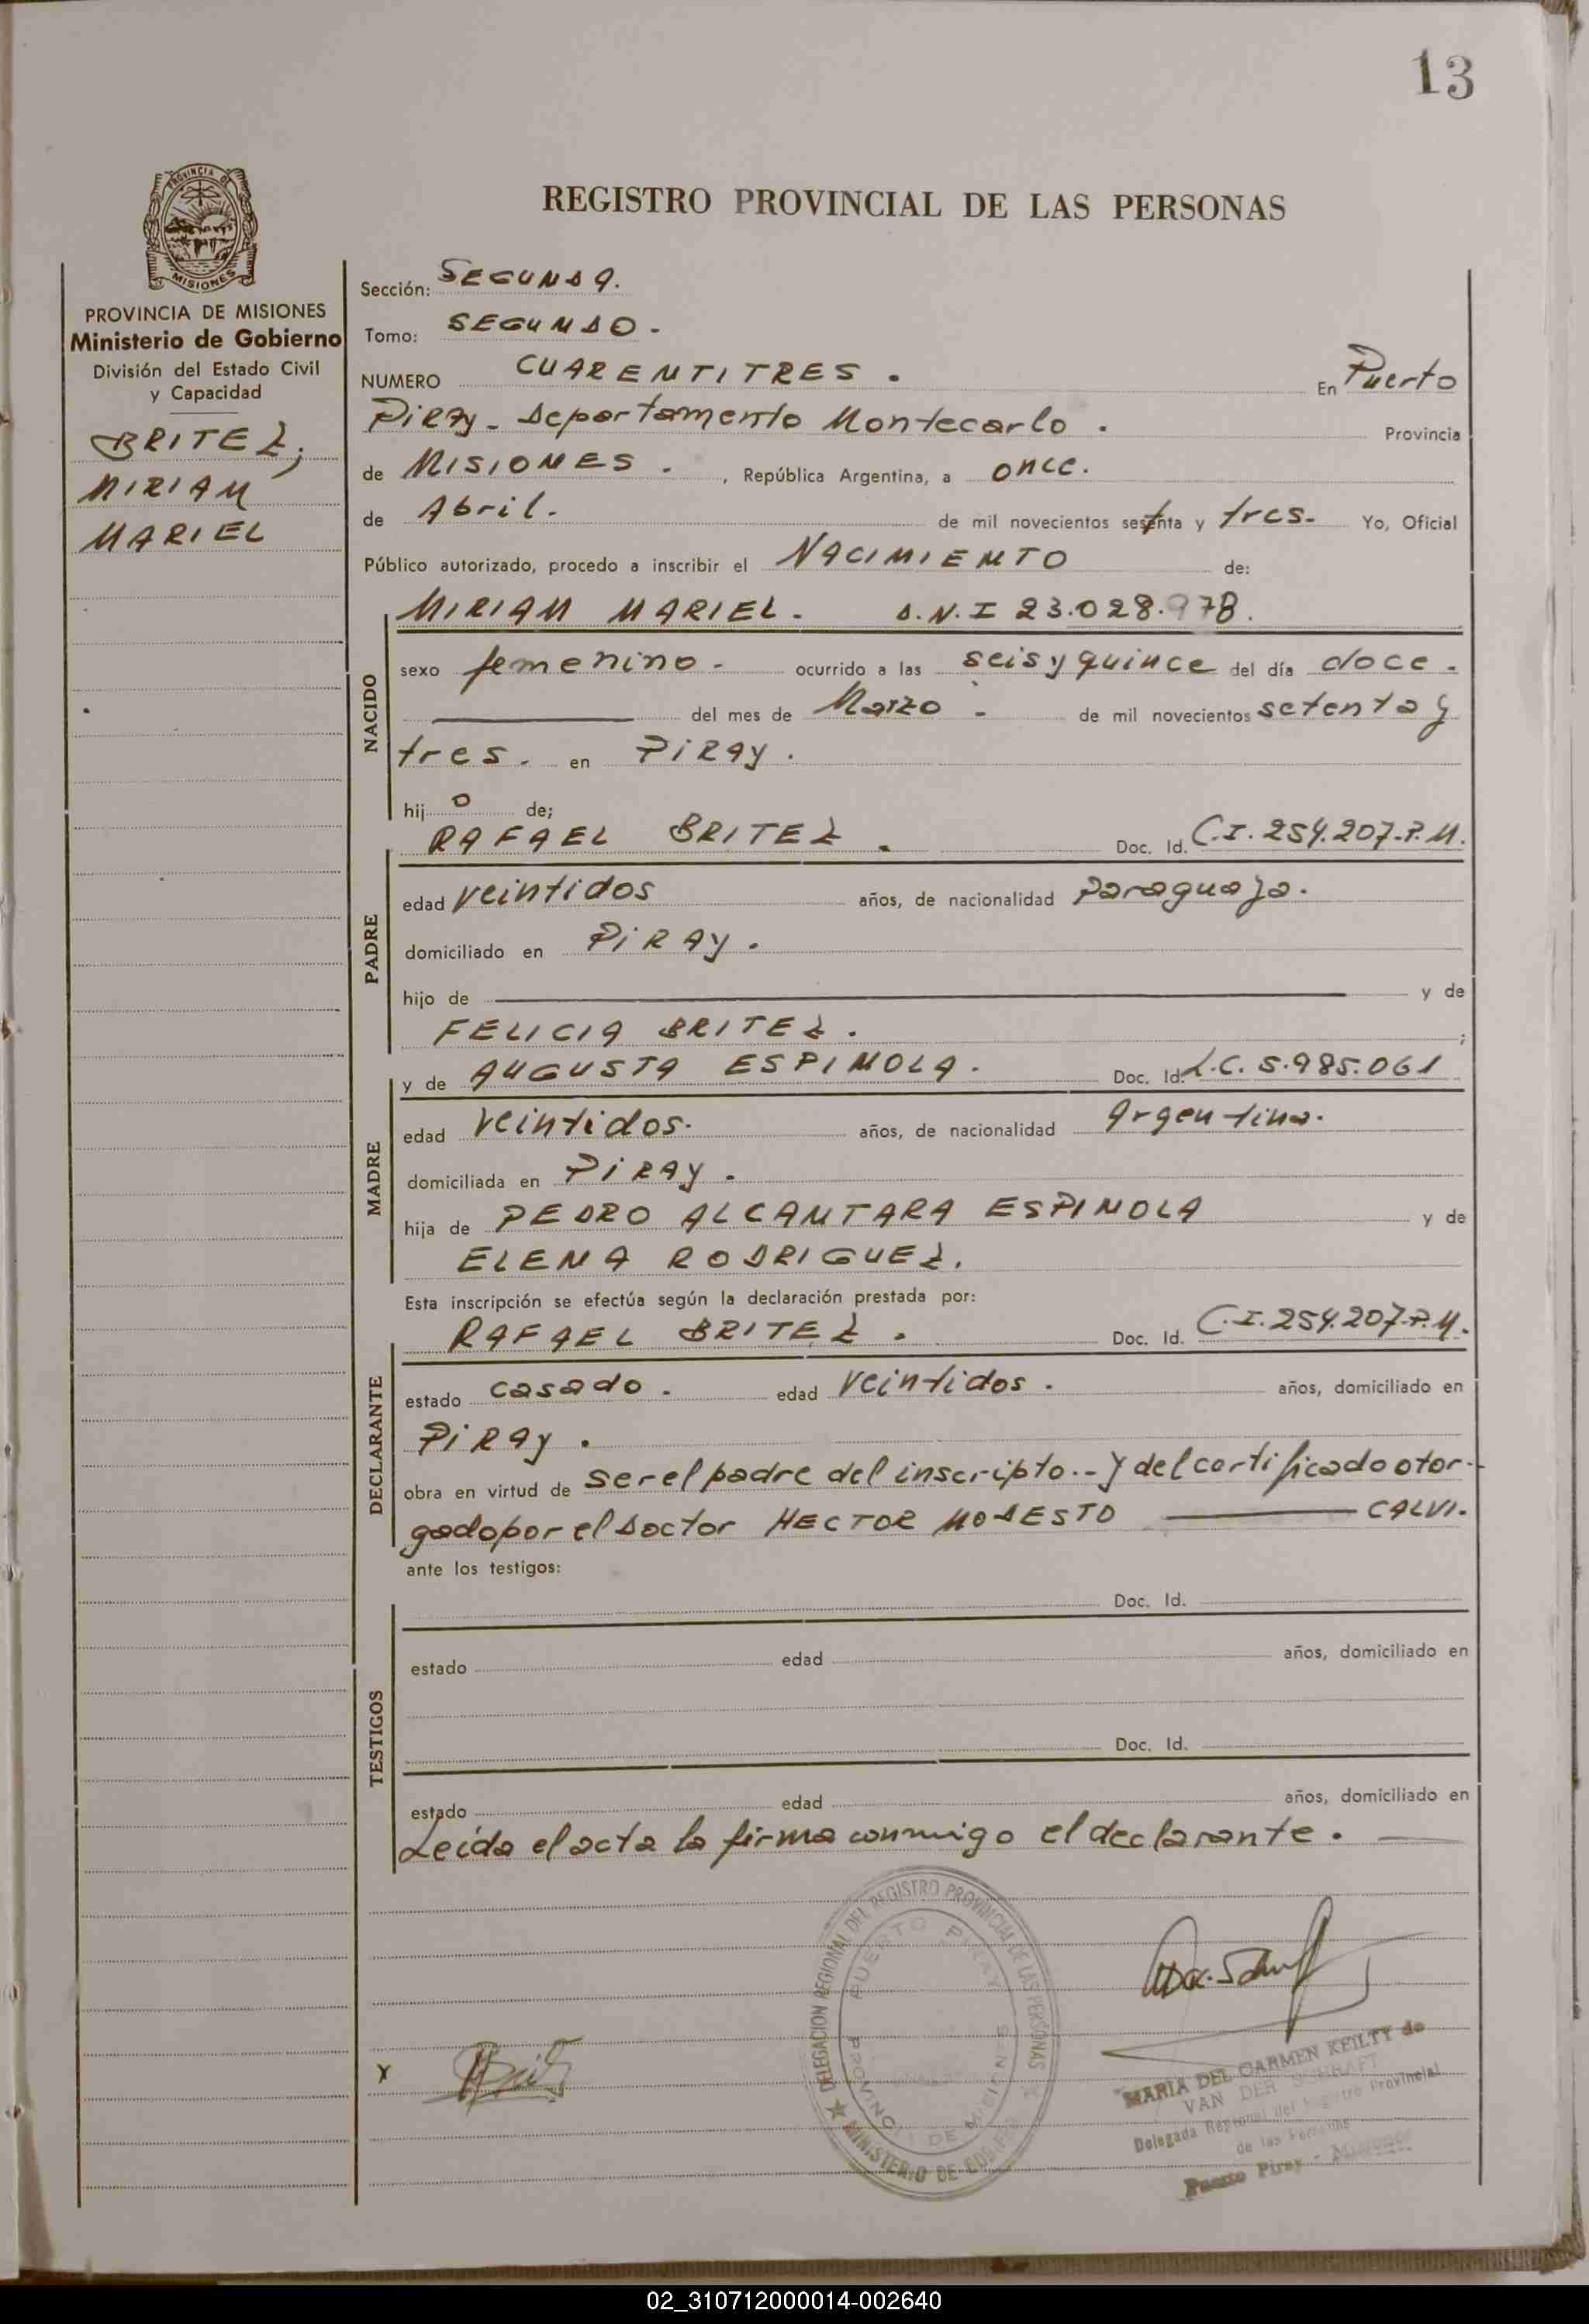 13
PROVINCIA DE
MISIONES
REGISTRO PROVINCIAL DE LAS PERSONAS
PROVINCIA DE MISIONES
Ministerio de Gobierno
División del Estado Civil
y Capacidad
BRITEZ,
MIRIAM
MARIEL
Sección: SEGUNDA.
Tomo: SEGUNDO.
NUMERO CUARENTITRES. En Puerto
Piray - Departamento Montecarlo. Provincia
de MISIONES. , República Argentina, a once.
de Abril. de mil novecientos setenta y tres. Yo, Oficial
Público autorizado, procedo a inscribir el NACIMIENTO de:
MIRIAM MARIEL. D.N.I 23.028.978.
NACIDO
sexo femenino. ocurrido a las seis y quince del día doce.
del mes de Marzo. de mil novecientos setenta y
tres. en PIRAY.
hijo de;
RAFAEL BRITEZ. Doc. Id. C.I. 254.207.P.M.
PADRE
edad veintidos años, de nacionalidad Paraguaya.
domiciliado en PIRAY.
hijo de y de
FELICIA BRITEZ. ;
y de AUGUSTA ESPINOLA. Doc. Id. L.C. 5.985.061
MADRE
edad veintidos. años, de nacionalidad Argentina.
domiciliada en PIRAY.
hija de PEDRO ALCANTARA ESPINOLA y de
ELENA RODRIGUEZ.
Esta inscripción se efectúa según la declaración prestada por:
RAFAEL BRITEZ. Doc. Id. C.I. 254.207.P.M.
DECLARANTE
estado casado. edad veintidos. años, domiciliado en
PIRAY.
obra en virtud de ser el padre del inscripto.- Y del certificado otor-
gado por el Doctor HECTOR MODESTO CALVI.
ante los testigos:
TESTIGOS
Doc. Id.
estado edad años, domiciliado en
Doc. Id.
estado edad años, domiciliado en
Leida el acta la firma conmigo el declarante.
DELEGACION REGIONAL DEL REGISTRO PROVINCIAL DE LAS PERSONAS
PUERTO PIRAY
DE MISIONES
MINISTERIO DE
MARIA DEL CARMEN KEILTY de
VAN DER
Delegada Regional del Registro Provincial
de las Personas
Puerto Piray - Misiones
02_310712000014-002640